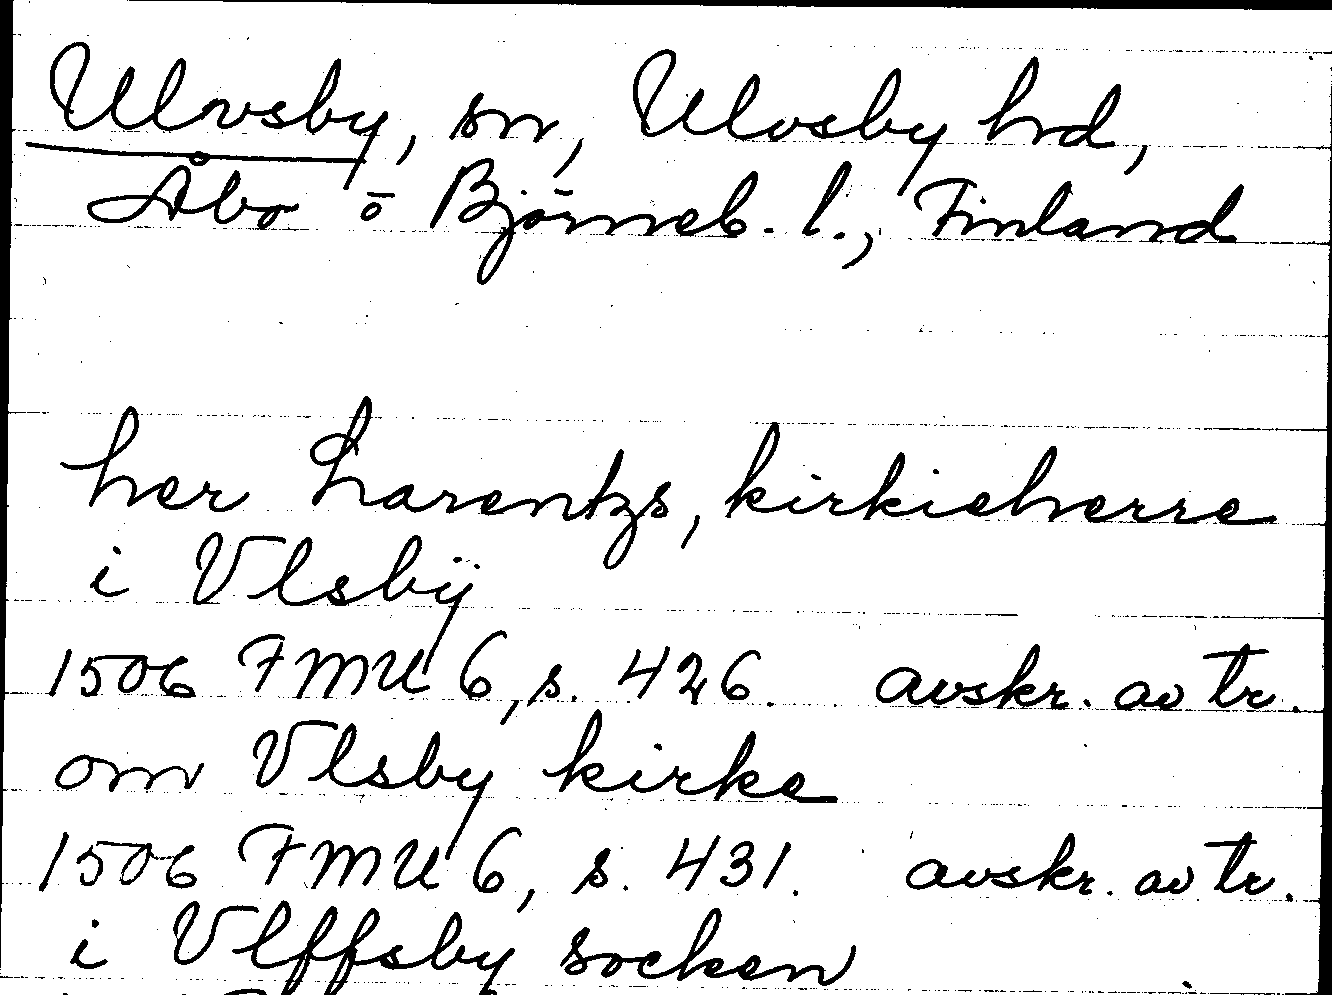 Ulvsby, sn, Ulvsby hd,
Åbo o Björneb. l., Finland
her Larentzs, kirkieherre
i Vlsbÿ
1506 FMU 6, s. 426. avskr. av tr.
om Vlsby kirke
1506 FMU 6, s. 431. avskr. av tr.
i Vlffsby socken